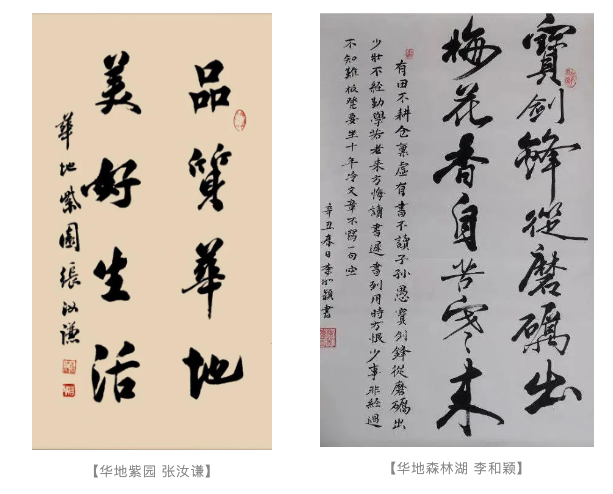 品質華地
美好生活
華地紫園張汝谦
寶劍鋒從磨礪出
梅花香自苦寒来
有田不耕仓禀虚有書不讀子孙愚寳剑鋒從磨礪出
少壯不經勤學苦老来方悔讀書遲書到用時方恨少事非經過
不知難板凳要坐十年冷文章不寫一句空
辛丑春日李和颖書
【华地紫园 张汝谦】
【华地森林湖 李和颖】